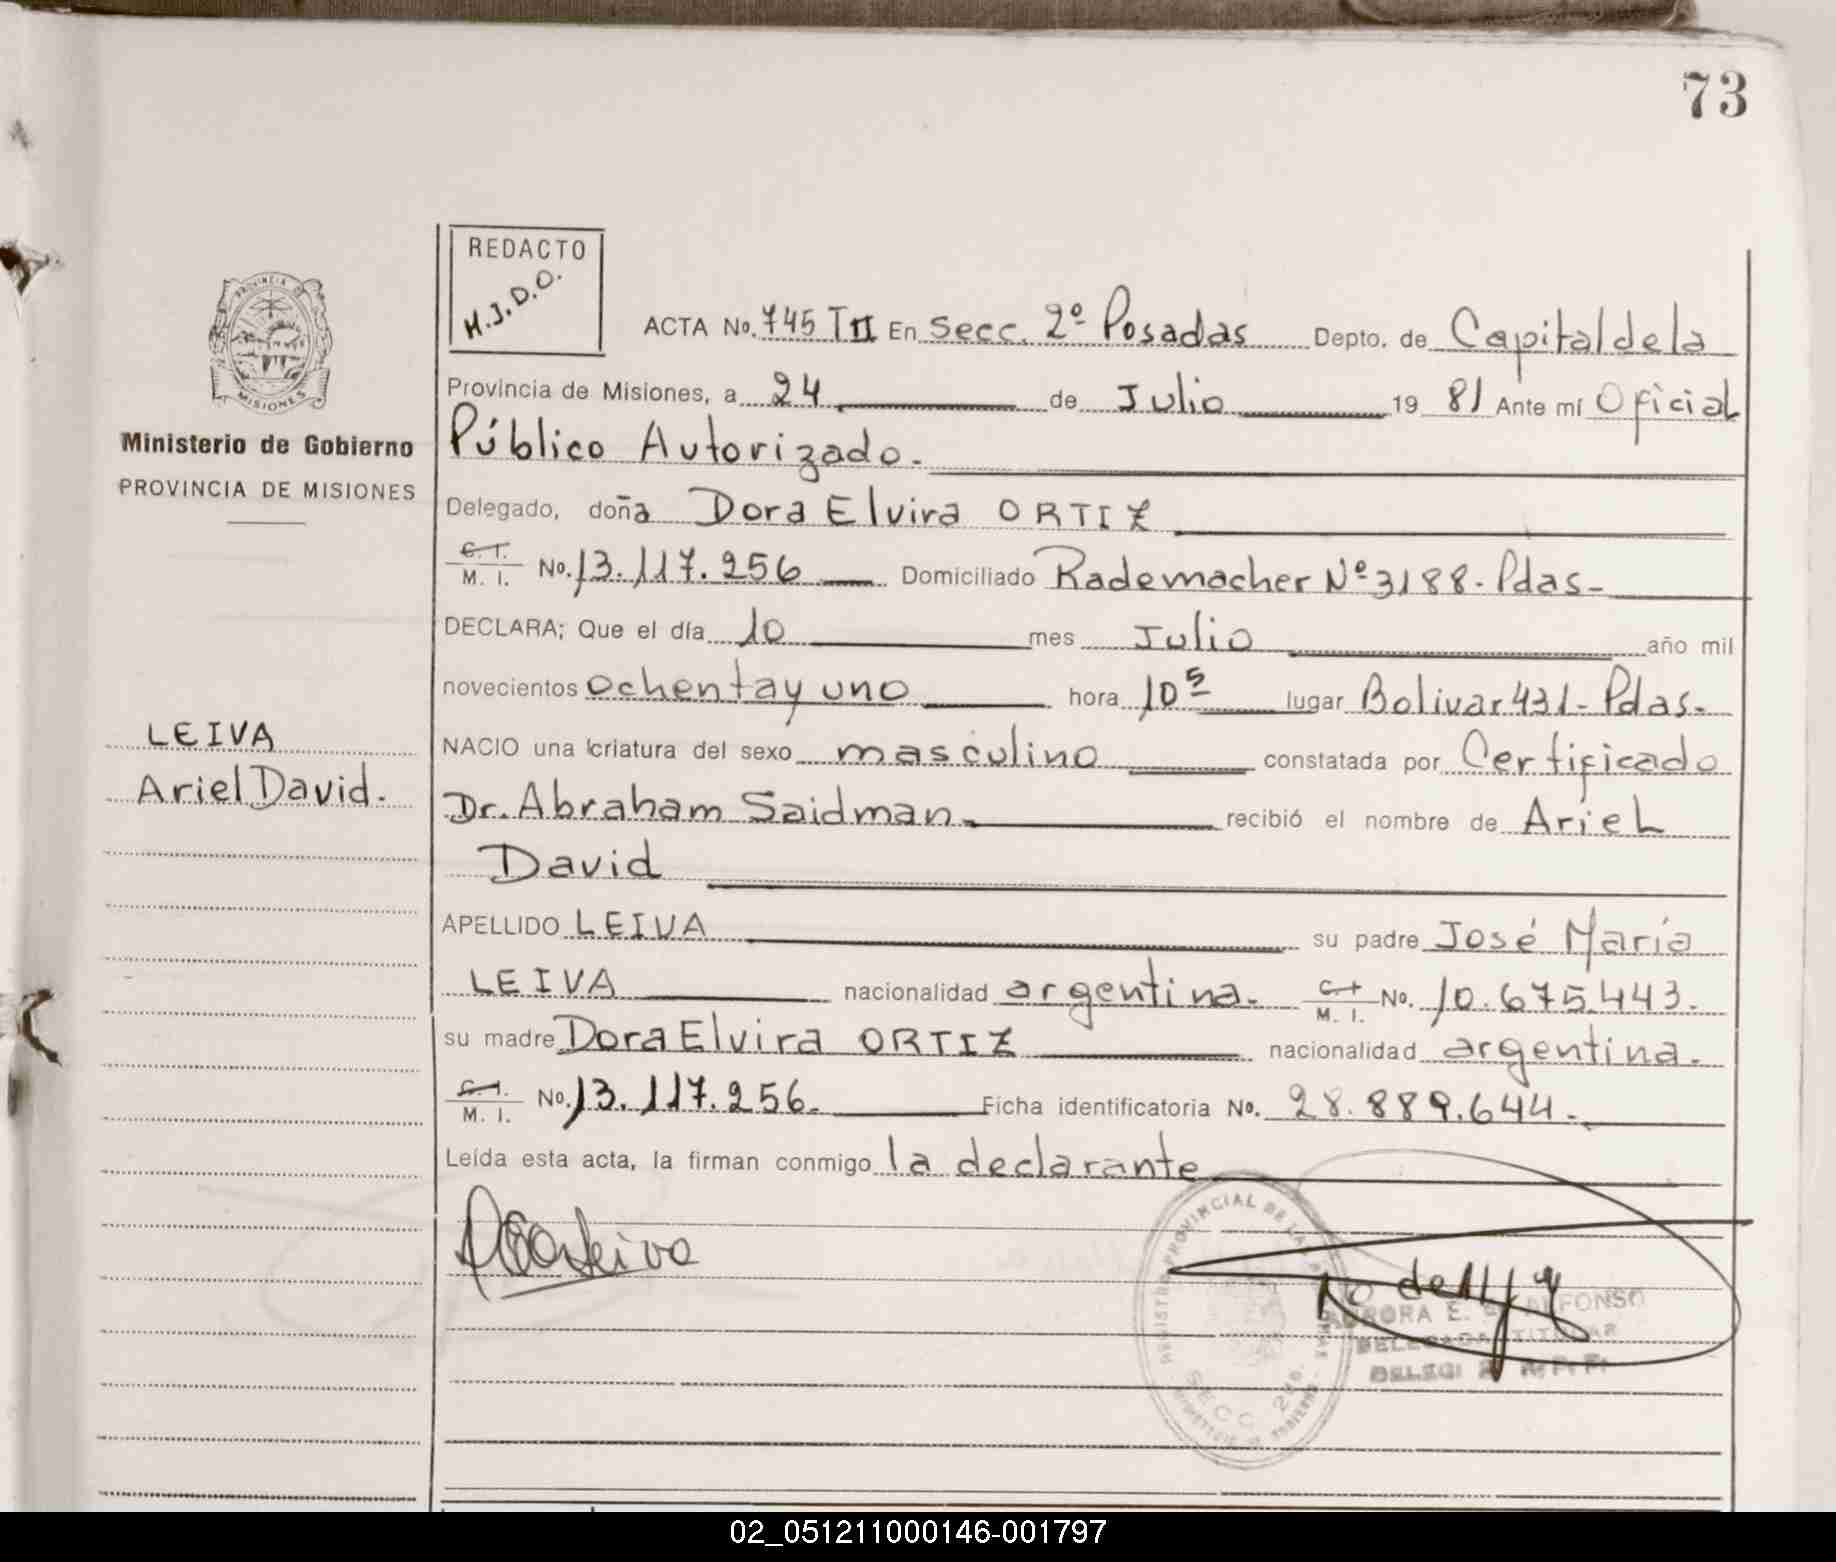 73
REDACTO
M.J.D.O.
PROVINCIA DE
MISIONES
Ministerio de Gobierno
PROVINCIA DE MISIONES
LEIVA
Ariel David.
ACTA No. 745 TII En Secc. 2º Posadas Depto. de Capital de la
Provincia de Misiones, a 24 de Julio 19 81 Ante mí Oficial
Público Autorizado.
Delegado, doña Dora Elvira ORTIZ
C. I.
M. I. No. 13.117.256 Domiciliado Rademacher Nº 3188. Pdas-
DECLARA; Que el día 10 mes Julio año mil
novecientos ochenta y uno hora 10 5 lugar Bolivar 431- Pdas.
NACIO una criatura del sexo masculino constatada por Certificado
Dr. Abraham Saidman. recibió el nombre de Ariel
David
APELLIDO LEIVA su padre José María
LEIVA nacionalidad argentina. C. I. M. I. No. 10.675.443.
su madre Dora Elvira ORTIZ nacionalidad argentina.
C. I.
M. I. No. 13.117.256. Ficha identificatoria No. 28.889.644.
Leída esta acta, la firman conmigo la declarante
REGISTRO PROVINCIAL DE LAS
SECC. 2da.
AURORA E. ALFONSO
DELEGADA TITULAR
02_051211000146-001797